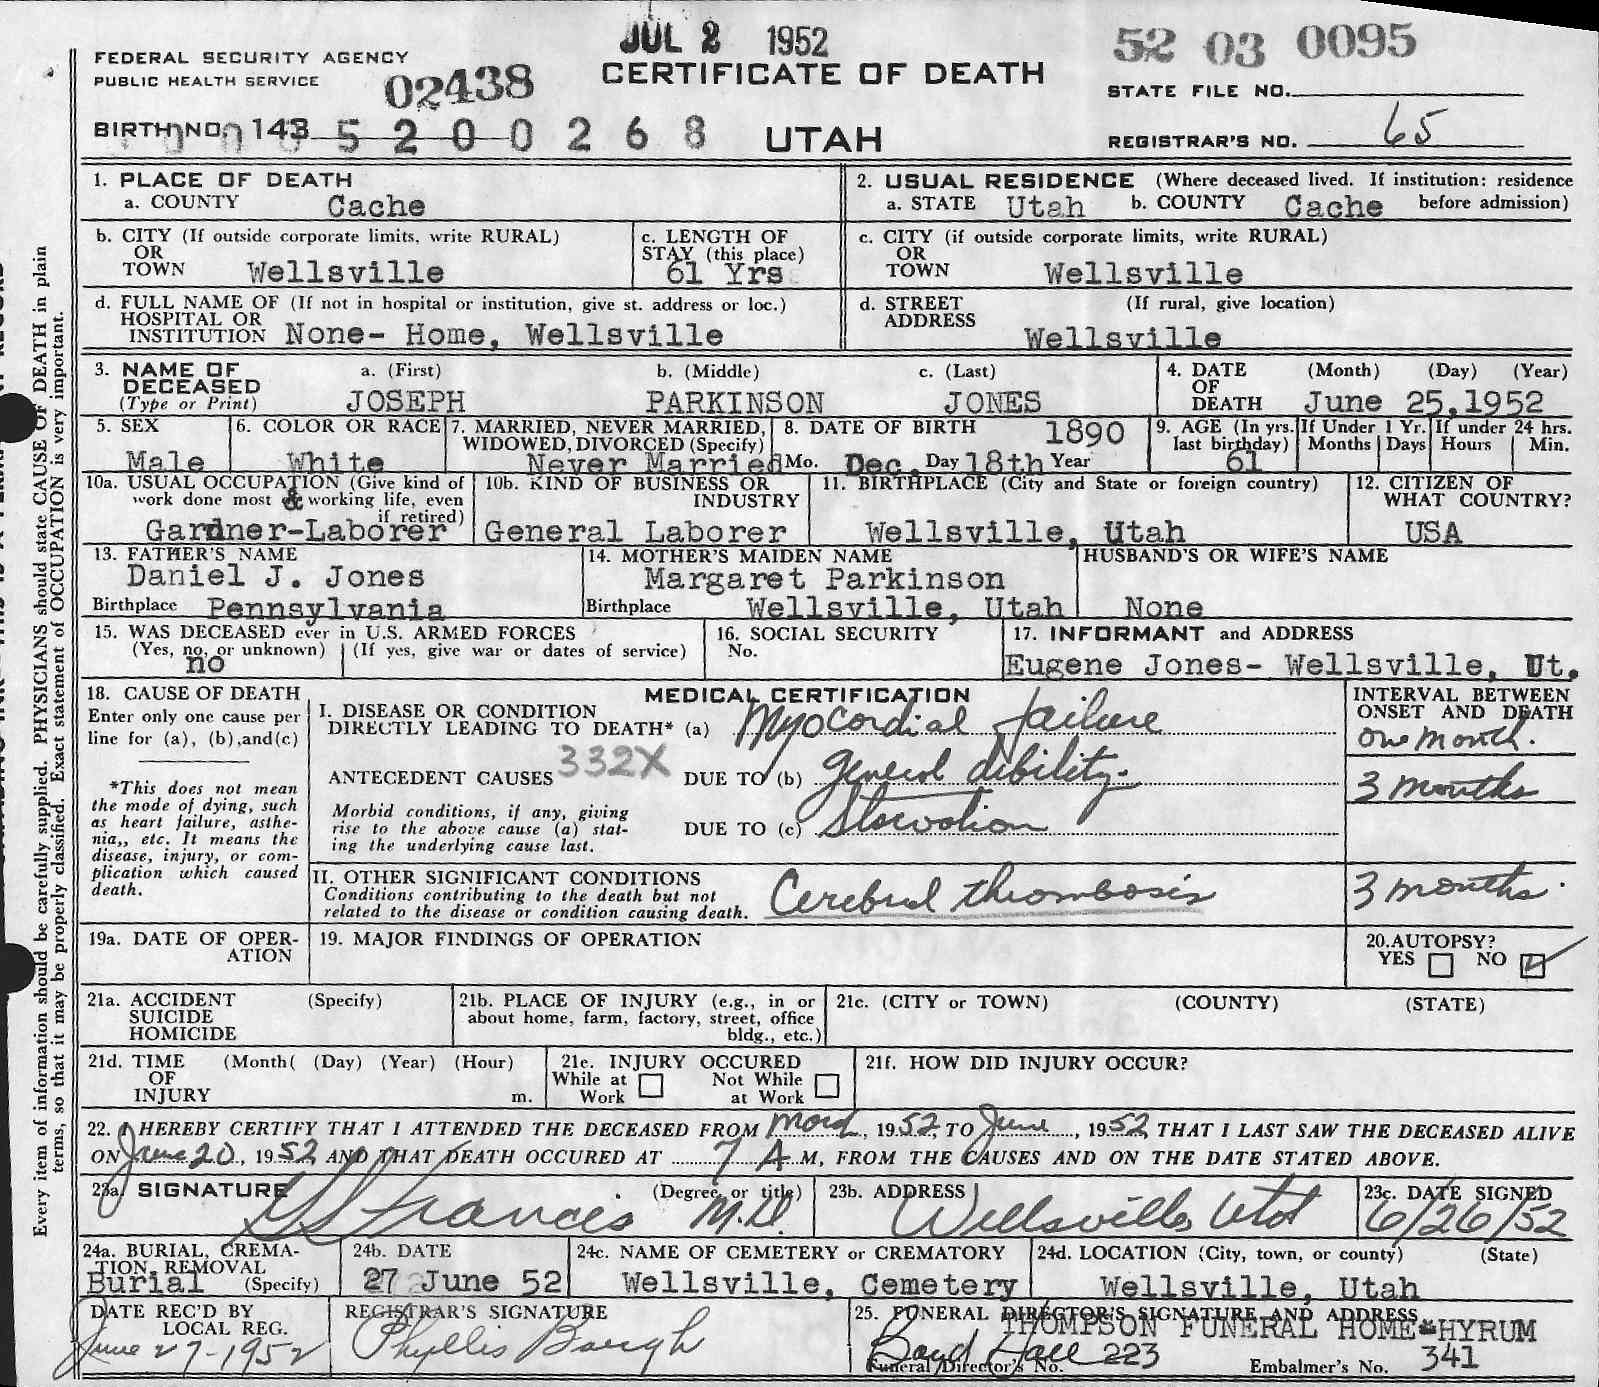 JUL 2 1952
52 03 0095
FEDERAL SECURITY AGENCY
PUBLIC HEALTH SERVICE
02438
CERTIFICATE OF DEATH
STATE FILE NO.
BIRTH NO. 143 5 2 0 0 2 6 8
UTAH
REGISTRAR'S NO. 65
1. PLACE OF DEATH
a. COUNTY Cache
2. USUAL RESIDENCE (Where deceased lived. If institution: residence before admission)
a. STATE Utah b. COUNTY Cache
b. CITY (If outside corporate limits, write RURAL)
OR
TOWN Wellsville
c. LENGTH OF
STAY (this place)
61 Yrs
c. CITY (if outside corporate limits, write RURAL)
OR
TOWN Wellsville
d. FULL NAME OF (If not in hospital or institution, give st. address or loc.)
HOSPITAL OR
INSTITUTION None- Home, Wellsville
d. STREET (If rural, give location)
ADDRESS Wellsville
3. NAME OF DECEASED
(Type or Print)
a. (First) b. (Middle) c. (Last)
JOSEPH PARKINSON JONES
4. DATE OF DEATH (Month) (Day) (Year)
June 25,1952
5. SEX
Male
6. COLOR OR RACE
White
7. MARRIED, NEVER MARRIED,
WIDOWED, DIVORCED (Specify)
Never Married
8. DATE OF BIRTH 1890
Mo. Dec. Day 18th Year
9. AGE (In yrs. last birthday)
61
If Under 1 Yr.
Months Days
If under 24 hrs.
Hours Min.
10a. USUAL OCCUPATION (Give kind of
work done most & working life, even
if retired)
Gardner-Laborer
10b. KIND OF BUSINESS OR
INDUSTRY
General Laborer
11. BIRTHPLACE (City and State or foreign country)
Wellsville, Utah
12. CITIZEN OF
WHAT COUNTRY?
USA
13. FATHER'S NAME
Daniel J. Jones
Birthplace Pennsylvania
14. MOTHER'S MAIDEN NAME
Margaret Parkinson
Birthplace Wellsville, Utah
HUSBAND'S OR WIFE'S NAME
None
15. WAS DECEASED ever in U.S. ARMED FORCES
(Yes, no, or unknown) (If yes, give war or dates of service)
no
16. SOCIAL SECURITY
No.
17. INFORMANT and ADDRESS
Eugene Jones- Wellsville, Ut.
18. CAUSE OF DEATH
Enter only one cause per
line for (a), (b),and(c)
*This does not mean
the mode of dying, such
as heart failure, asthe-
nia,, etc. It means the
disease, injury, or com-
plication which caused
death.
MEDICAL CERTIFICATION
I. DISEASE OR CONDITION
DIRECTLY LEADING TO DEATH* (a) Myocordial failure
ANTECEDENT CAUSES 332X DUE TO (b) general dibility.
Morbid conditions, if any, giving
rise to the above cause (a) stat-
ing the underlying cause last.
DUE TO (c) Starvation
II. OTHER SIGNIFICANT CONDITIONS
Conditions contributing to the death but not
related to the disease or condition causing death.
Cerebral thrombosis
INTERVAL BETWEEN
ONSET AND DEATH
one month.
3 months
3 months.
19a. DATE OF OPER-
ATION
19. MAJOR FINDINGS OF OPERATION
20.AUTOPSY?
YES NO
21a. ACCIDENT (Specify)
SUICIDE
HOMICIDE
21b. PLACE OF INJURY (e.g., in or
about home, farm, factory, street, office
bldg., etc.)
21c. (CITY or TOWN) (COUNTY) (STATE)
21d. TIME (Month( (Day) (Year) (Hour)
OF
INJURY m.
21e. INJURY OCCURED
While at Work Not While at Work
21f. HOW DID INJURY OCCUR?
22. I HEREBY CERTIFY THAT I ATTENDED THE DECEASED FROM March, 1952, TO June, 1952, THAT I LAST SAW THE DECEASED ALIVE
ON June 20, 1952 AND THAT DEATH OCCURED AT 7 A.M, FROM THE CAUSES AND ON THE DATE STATED ABOVE.
23a. SIGNATURE (Degree or title)
Francis M.D.
23b. ADDRESS
Wellsville Utah
23c. DATE SIGNED
6/26/52
24a. BURIAL, CREMA-
TION, REMOVAL
Burial (Specify)
24b. DATE
27 June 52
24c. NAME OF CEMETERY or CREMATORY
Wellsville, Cemetery
24d. LOCATION (City, town, or county) (State)
Wellsville, Utah
DATE REC'D BY
LOCAL REG.
June 27-1952
REGISTRAR'S SIGNATURE
Phyllis Baugh
25. FUNERAL DIRECTOR'S SIGNATURE AND ADDRESS
THOMPSON FUNERAL HOME-HYRUM
Boyd Hall 223
Funeral Director's No.
Embalmer's No. 341
Every item of information should be carefully supplied. PHYSICIANS should state CAUSE OF DEATH in plain
terms, so that it may be properly classified. Exact statement of OCCUPATION is very important.